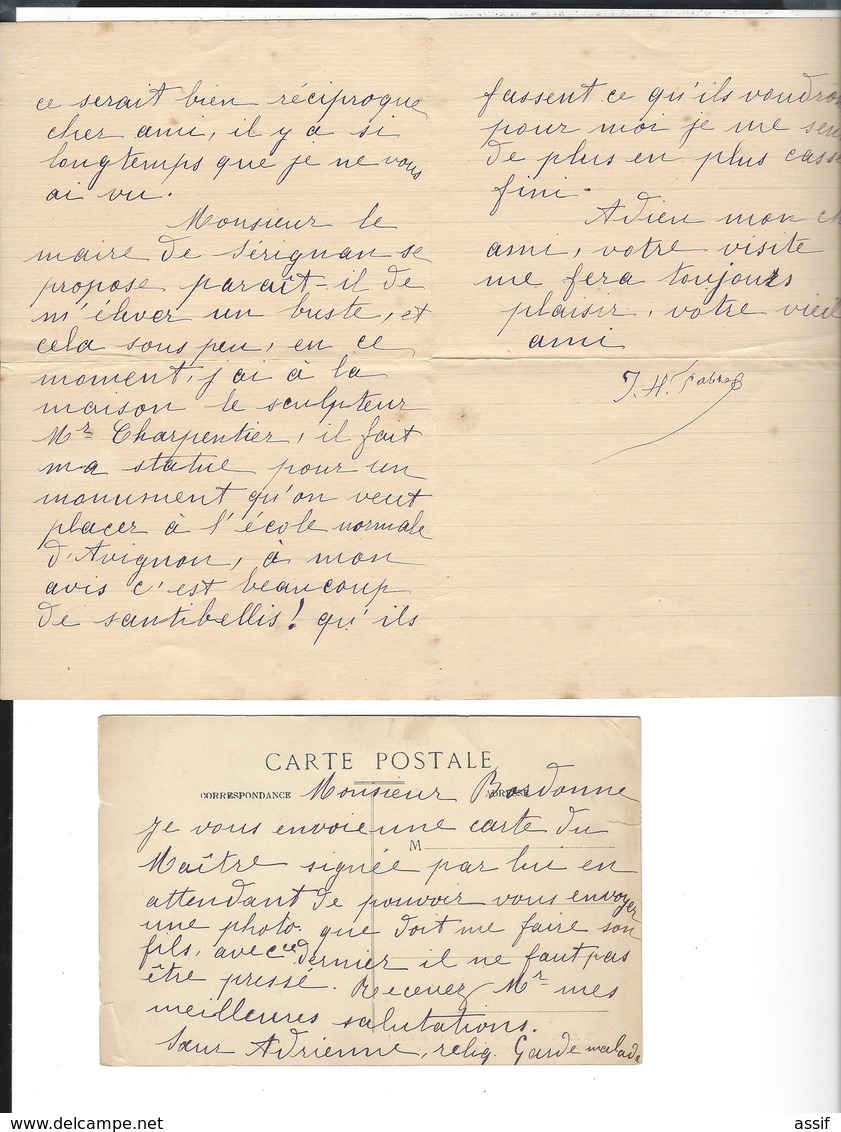 ce serait bien réciproque
cher ami, il y a si
longtemps que je ne vous
ai vu.
Monsieur le
maire de Sérignan se
propose paraît-il de
m'élever un buste, et
cela sous peu, en ce
moment, j'ai à la
maison le sculpteur
Mr Charpentier, il fait
ma statue pour un
monument qu'on veut
placer à l'école normale
d'Avignon, à mon
avis c'est beaucoup
de santibellis! qu'ils
fassent ce qu'ils voudron
pour moi je me sen
de plus en plus cassé
fini.
Adieu mon ch
ami, votre visite
me fera toujours
plaisir, votre vieil
ami
J. H. Fabre
CARTE POSTALE
CORRESPONDANCE
ADRESSE
M
Monsieur Bordonne
je vous envoie une carte du
Maître signée par lui en
attendant de pouvoir vous envoyer
une photo. que doit me faire son
fils, avec ce dernier il ne faut pas
être pressé. Recevez Mr mes
meilleures salutations.
Sœur Adrienne, relig. Garde malade
assif